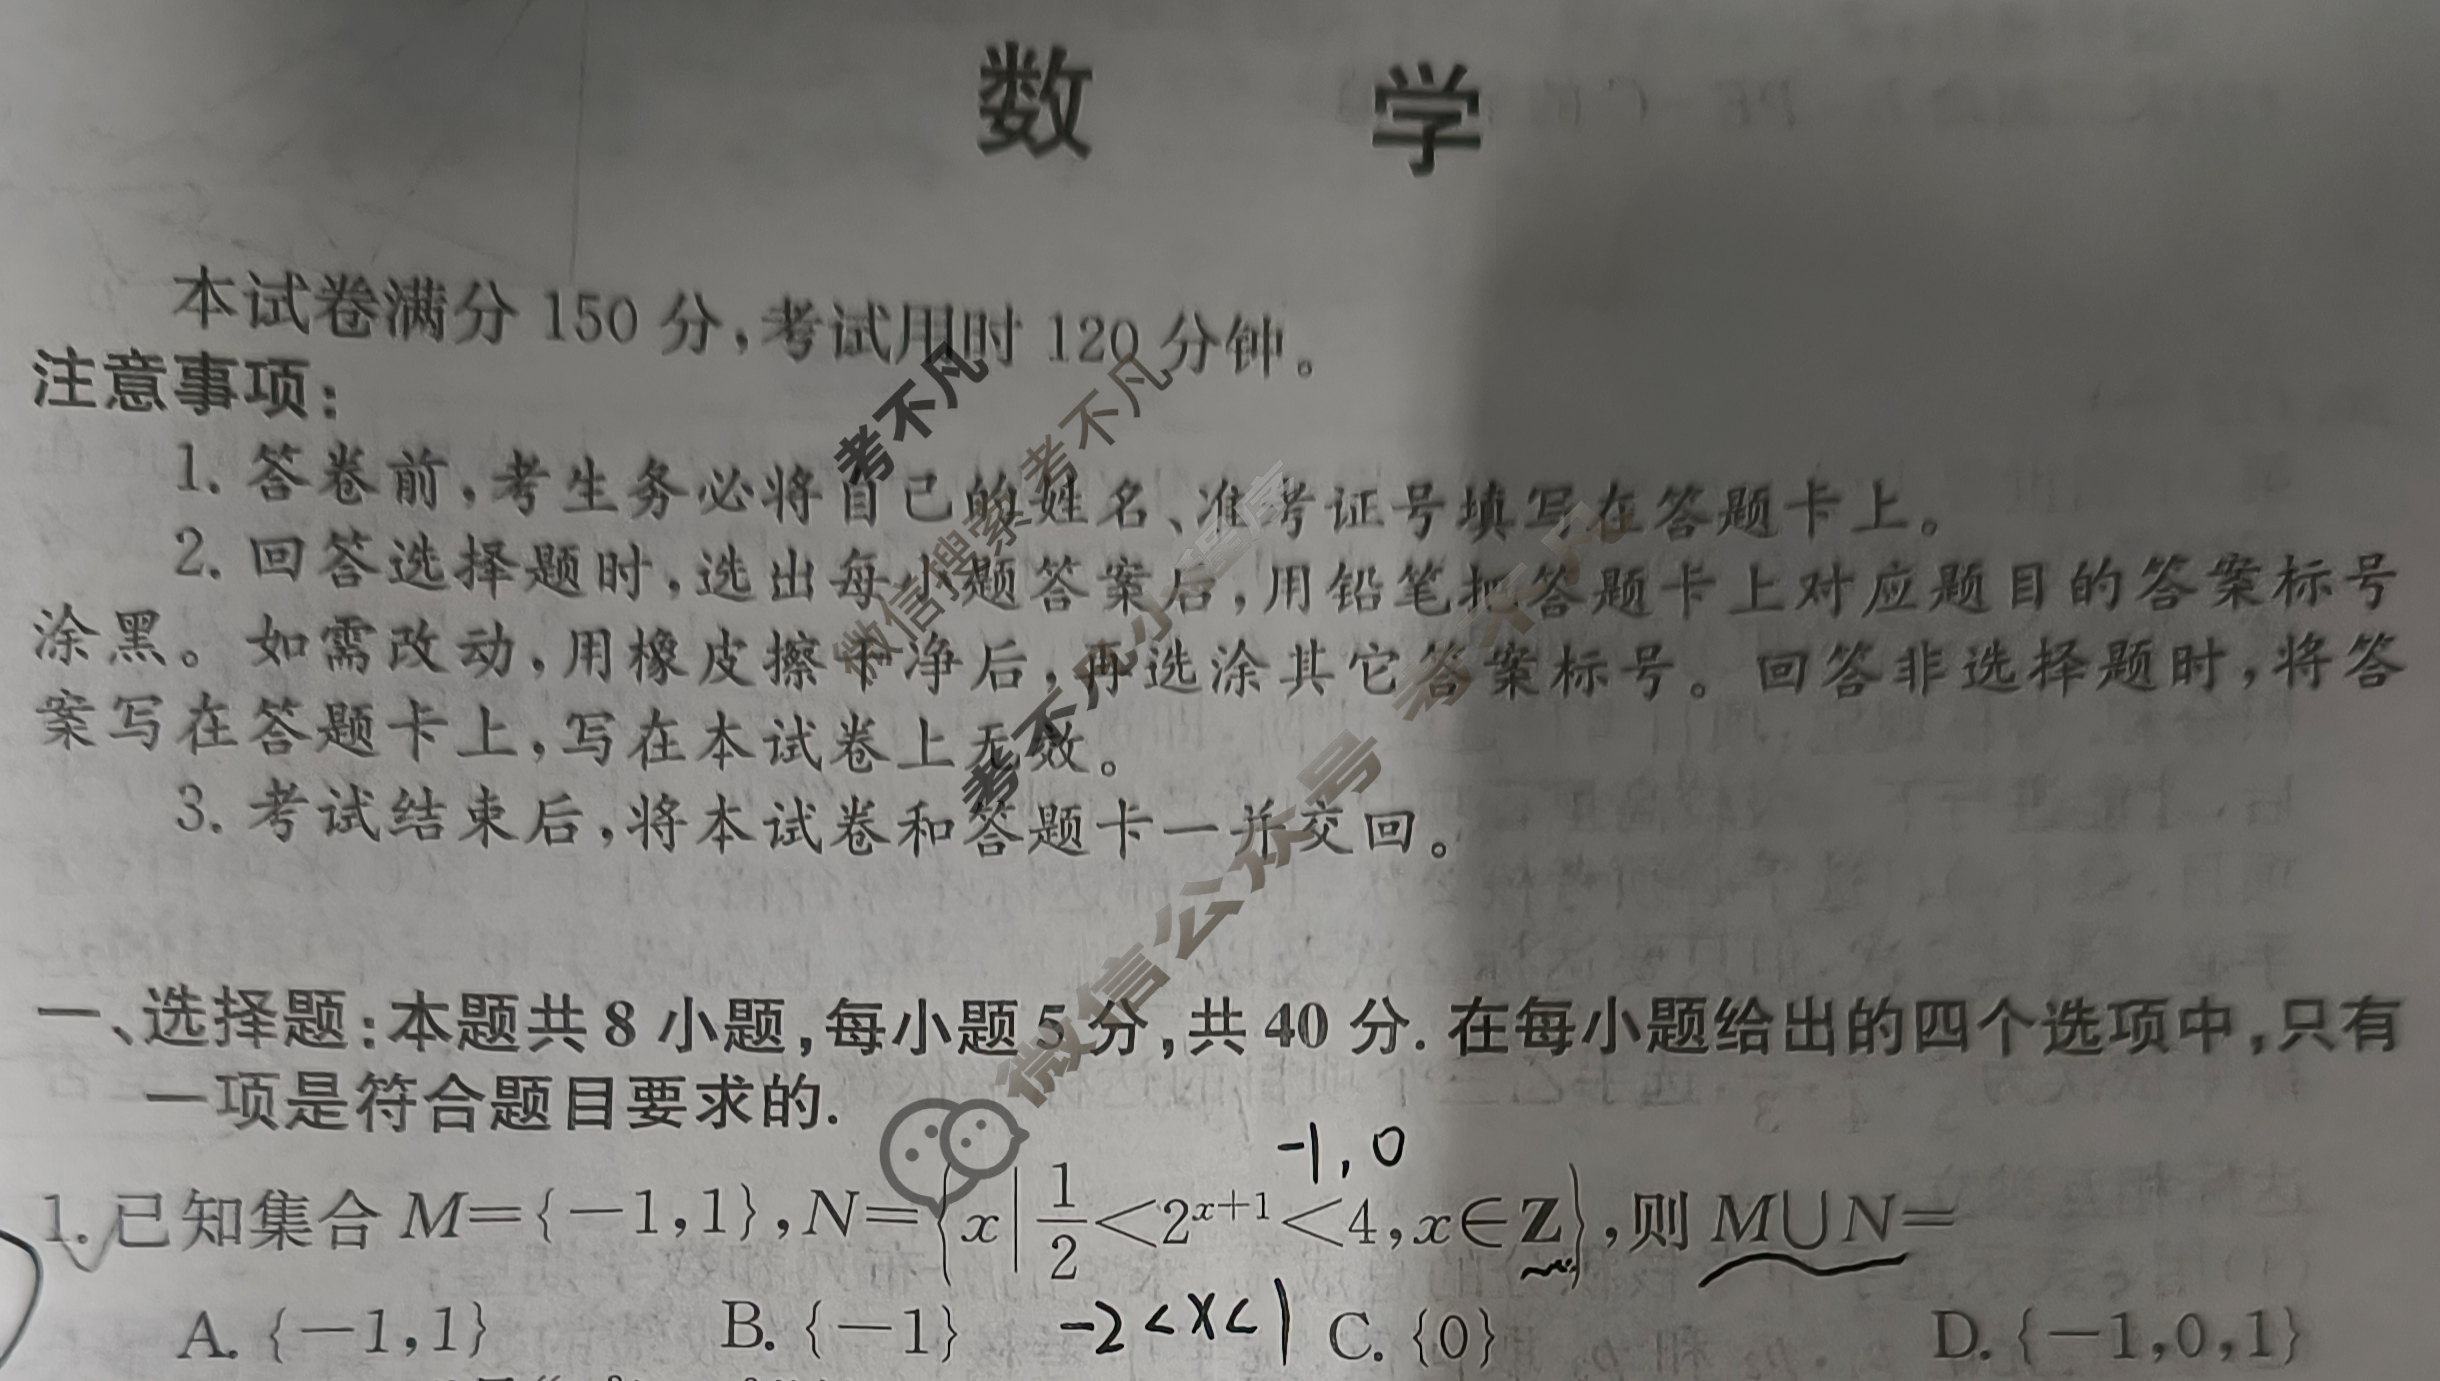 数 学
本试卷满分 150 分,考试用时 120 分钟。
注意事项:
1. 答卷前,考生务必将自己的姓名、准考证号填写在答题卡上。
2. 回答选择题时,选出每小题答案后,用铅笔把答题卡上对应题目的答案标号
涂黑。如需改动,用橡皮擦干净后,再选涂其它答案标号。回答非选择题时,将答
案写在答题卡上,写在本试卷上无效。
3. 考试结束后,将本试卷和答题卡一并交回。
考不凡
微信搜索 考不凡
考不凡小程序
微信公众号 考不凡
一、选择题:本题共 8 小题,每小题 5 分,共 40 分. 在每小题给出的四个选项中,只有
一项是符合题目要求的.
-1,0
1. 已知集合 M={-1,1},N={x|1/2<2^{x+1}<4,x∈Z},则 M∪N=
A. {-1,1} B. {-1} -2<x<1 C. {0} D. {-1,0,1}